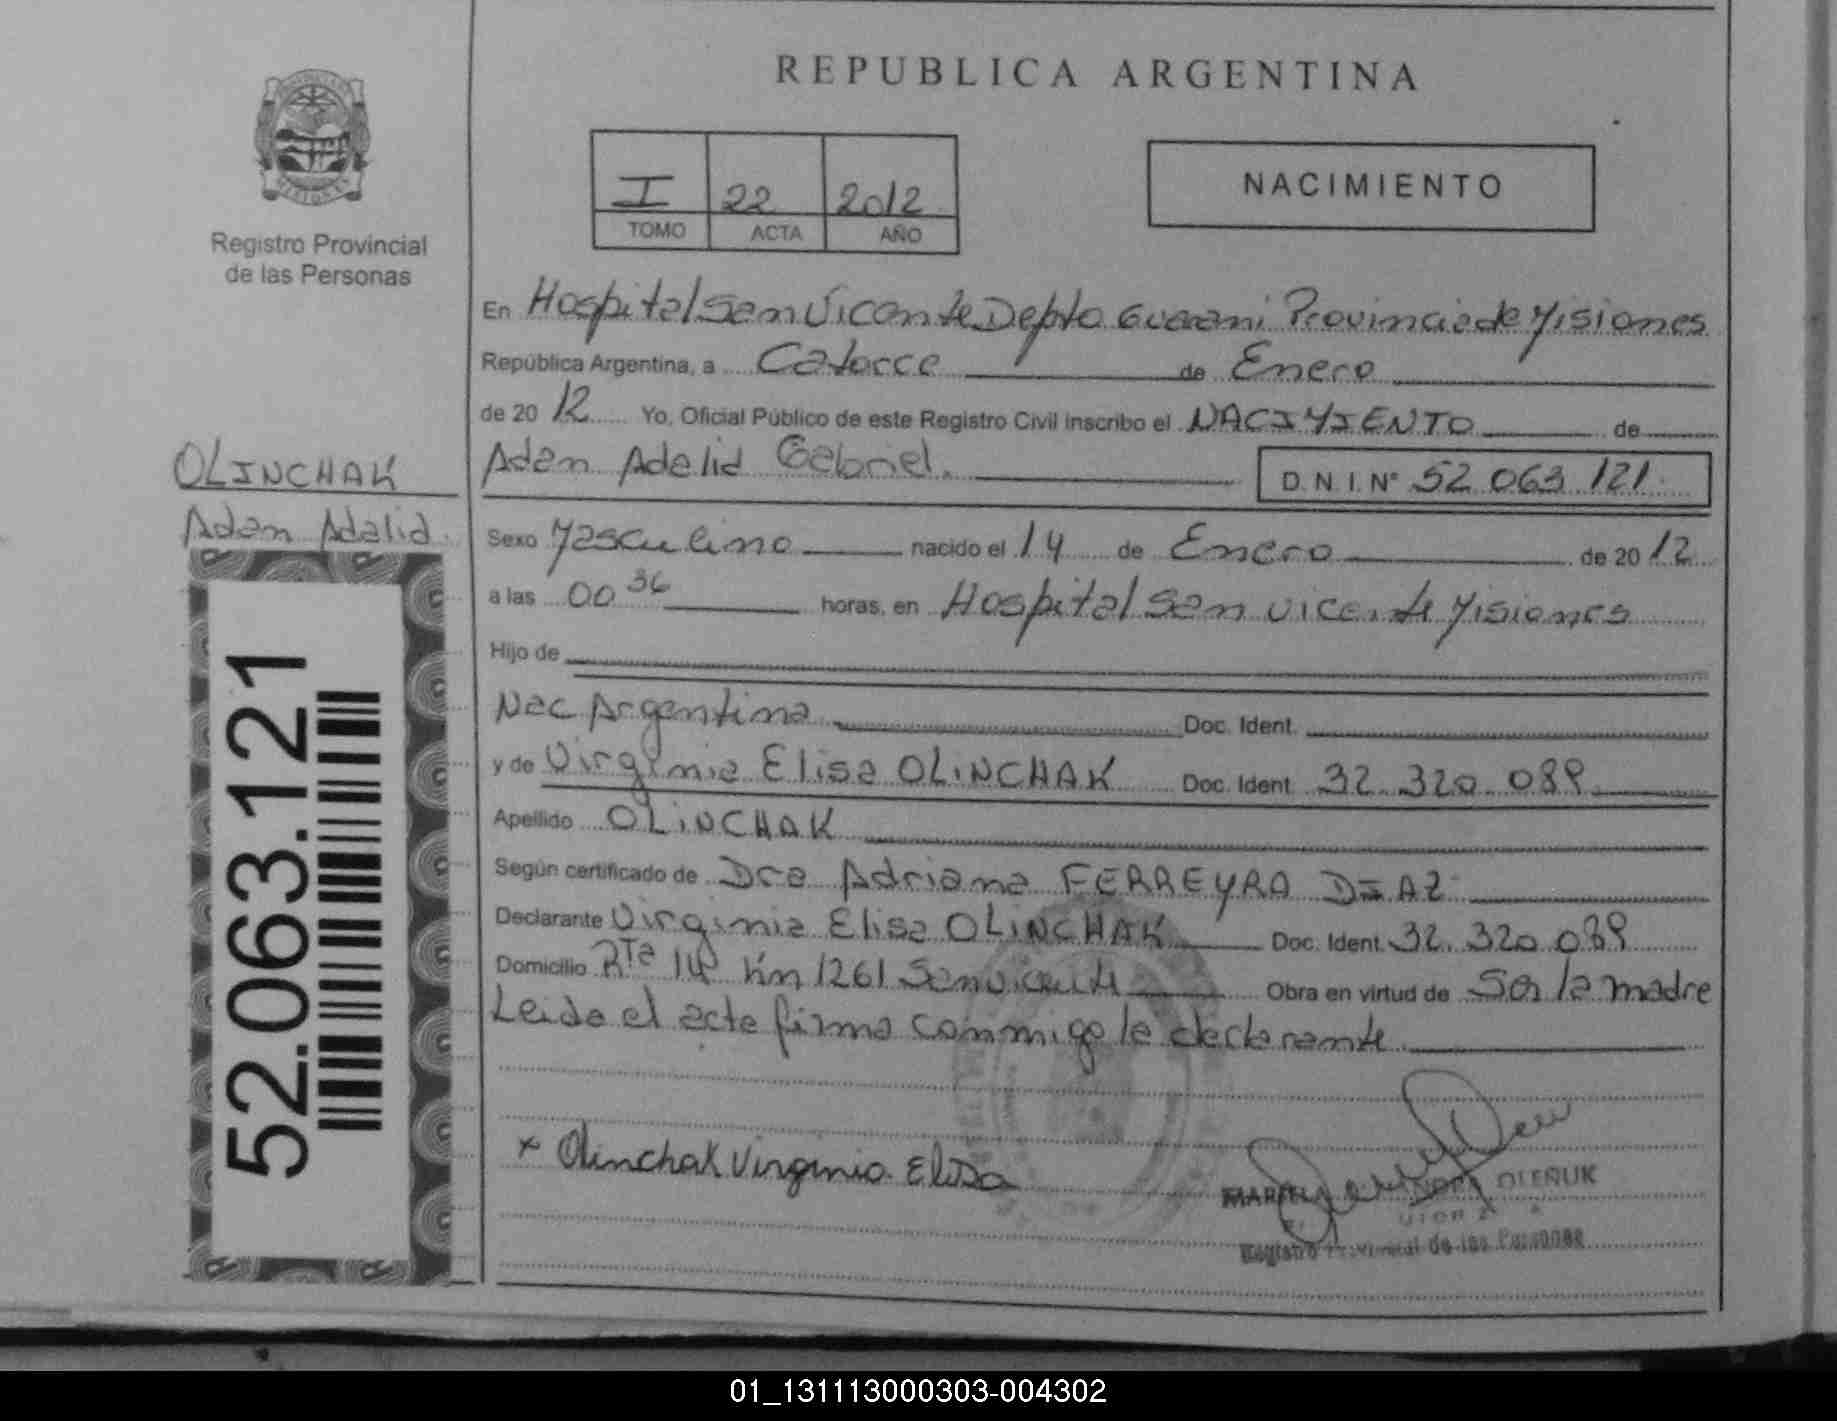 REPUBLICA ARGENTINA
I 22 2012
TOMO ACTA AÑO
NACIMIENTO
MISIONES
Registro Provincial
de las Personas
En Hospital San Vicente Depto Guarani Provincia de Misiones
República Argentina, a Catorce de Enero
de 2012 Yo, Oficial Público de este Registro Civil inscribo el NACIMIENTO de
Adan Adalid Gabriel.
D.N.I. N° 52 063 121
OLINCHAK
Adan Adalid
52.063.121
Sexo Masculino nacido el 14 de Enero de 2012
a las 00 36 horas, en Hospital San Vicente Misiones
Hijo de
Nac Argentina Doc. Ident.
y de Virginia Elisa OLINCHAK Doc. Ident. 32 320 089
Apellido OLINCHAK
Según certificado de Dra Adriana FERREYRA DIAZ
Declarante Virginia Elisa OLINCHAK Doc. Ident. 32 320 089
Domicilio Rta 14 Km 1261 San Vicente Obra en virtud de Ser la madre
Leida el acta firma conmigo la declarante
x Olinchak Virginia Elisa
OLEÑUK
Registro Provincial de las Personas
01_131113000303-004302